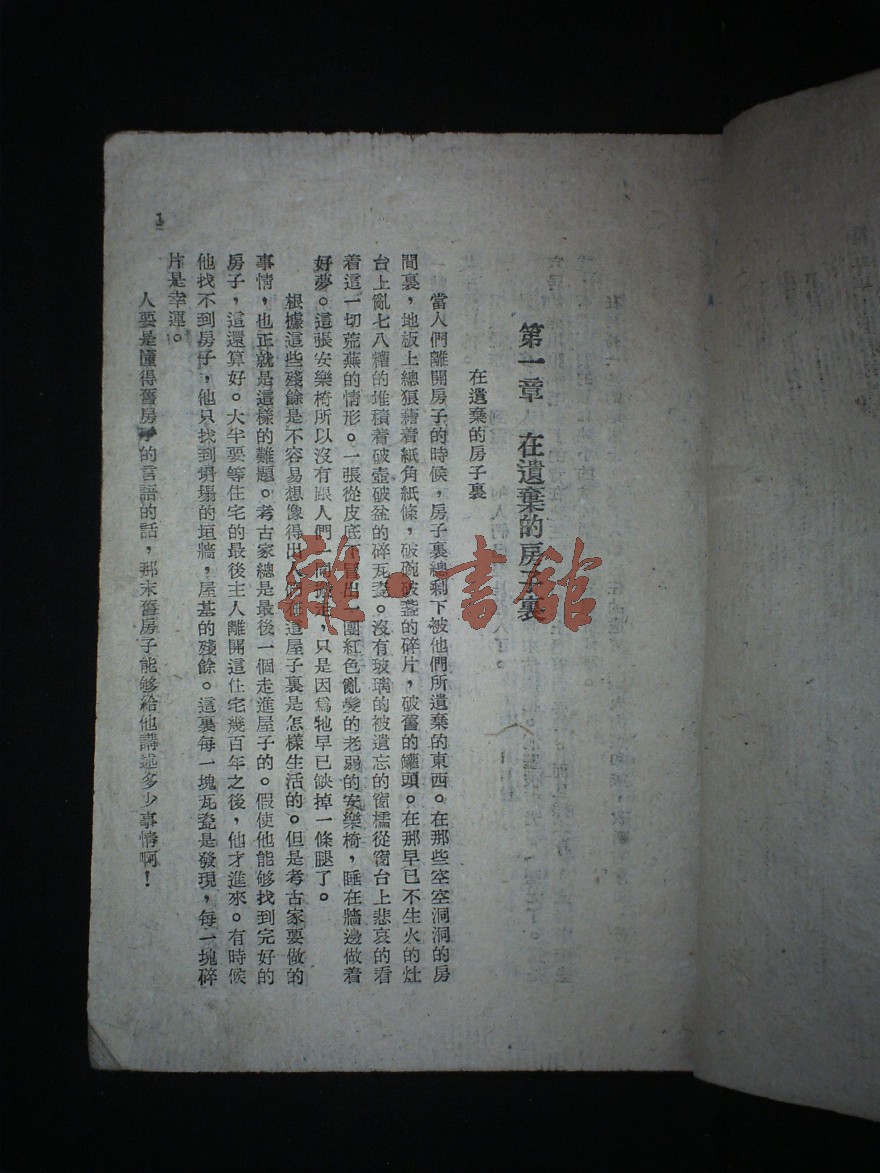 第一章　在遺棄的房子裏
在遺棄的房子裏
當人們離開房子的時候，房子裏總剩下被他們所遺棄的東西。在那些空空洞洞的房
間裏，地板上總狼藉着紙角紙條，破碗破盞的碎片，破舊的罐頭。在那早已不生火的灶
台上亂七八糟的堆積着破壺破盆的碎瓦瓷。沒有玻璃的被遺忘的窗檽從窗台上悲哀的看
着這一切荒蕪的情形。一張從皮底下冒出一團紅色亂髮的老弱的安樂椅，睡在牆邊做着
好夢。這張安樂椅所以沒有跟人們一同搬走，只是因爲牠早已缺掉一條腿了。
根據這些殘餘是不容易想像得出人們在這屋子裏是怎樣生活的。但是考古家要做的
事情，也正就是這樣的難題。考古家總是最後一個走進屋子的。假使他能够找到完好的
房子，這還算好。大半要等住宅的最後主人離開這住宅幾百年之後，他才進來。有時候
他找不到房子，他只找到坍塌的垣牆，屋基的殘餘。這裏每一塊瓦瓷是發現，每一塊碎
片是幸運。
人要是懂得舊房子的言語的話，那末舊房子能够給他講述多少事情啊！
1
雜·書館